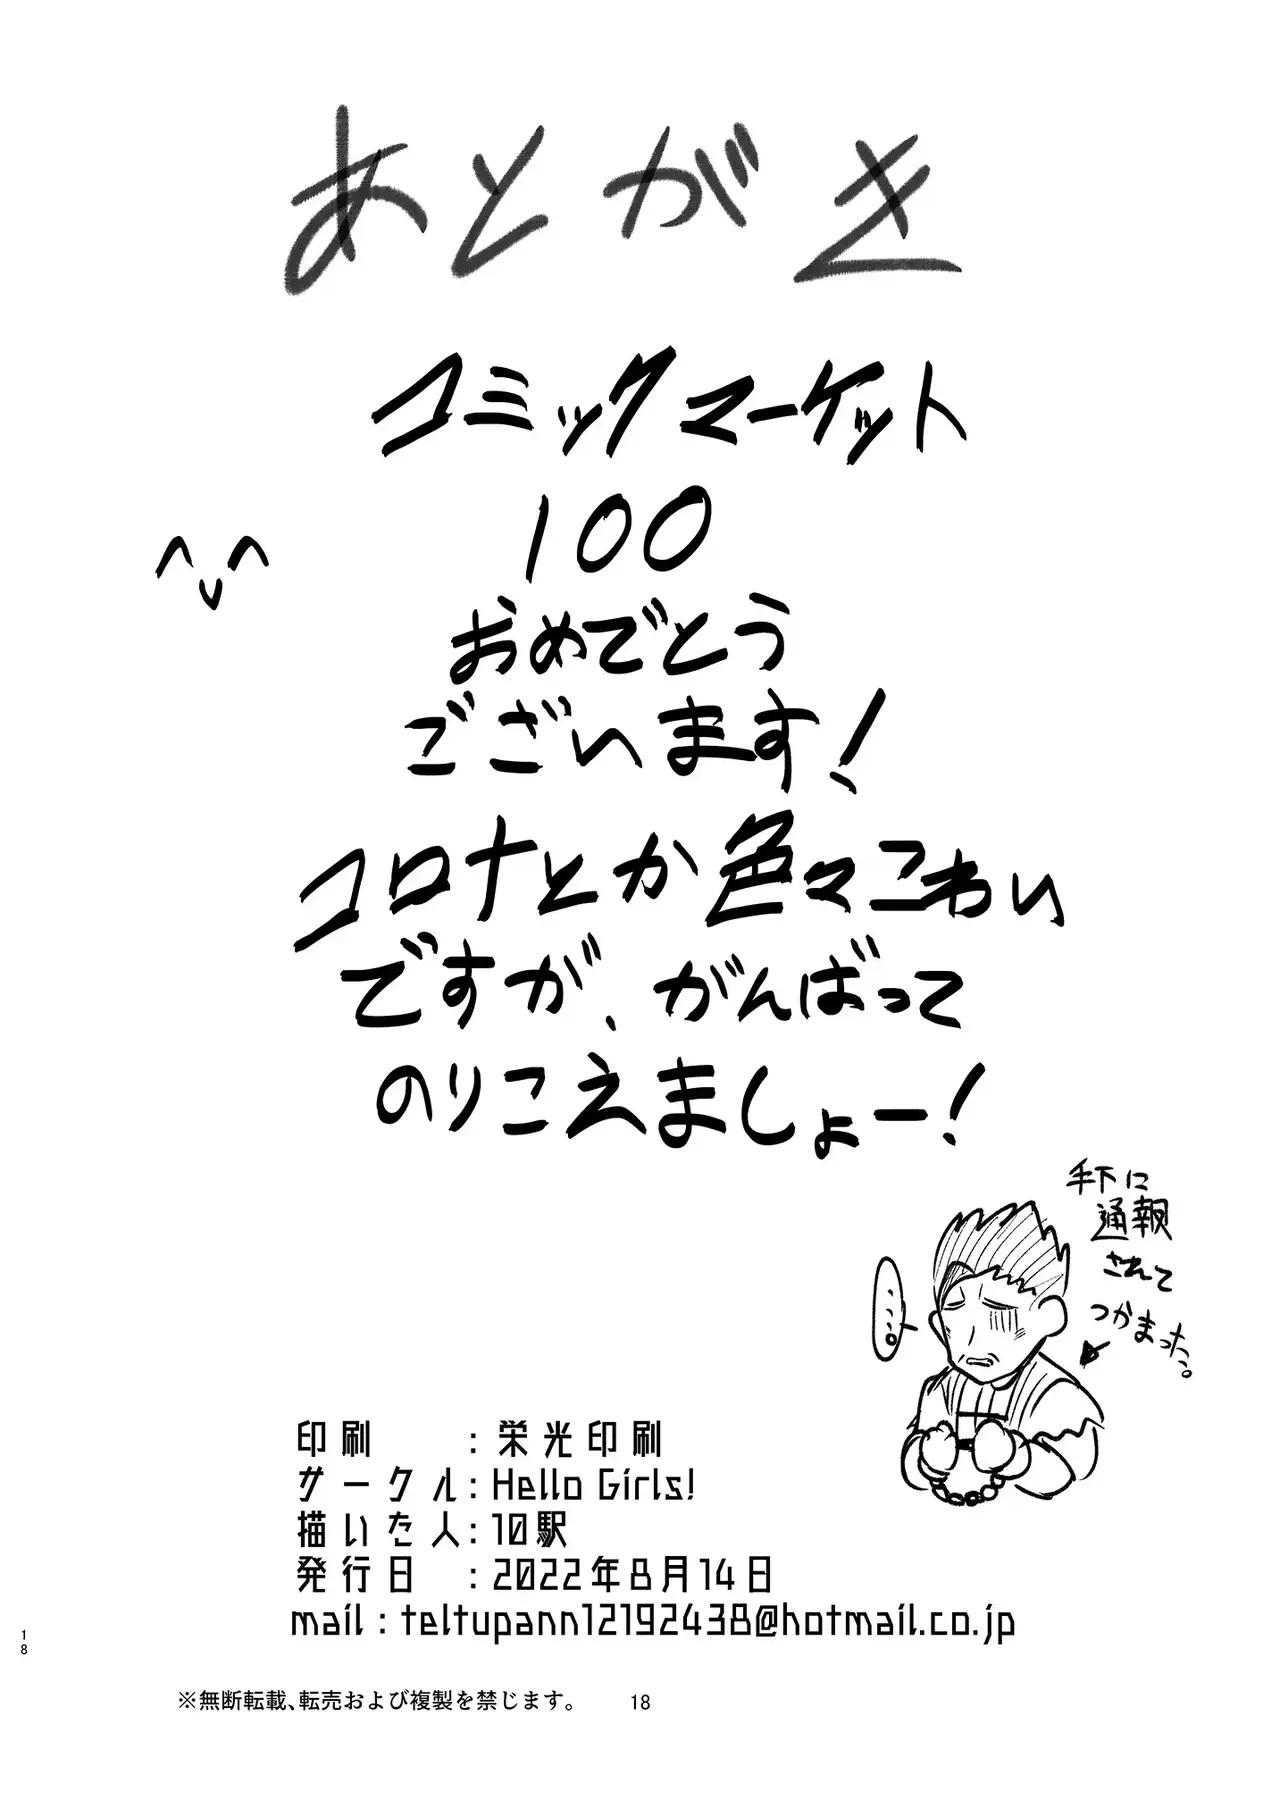 あとがき
コミックマーケット
100
おめでとう
ございます!
コロナとか色々こわい
ですが、がんばって
のりこえましょー!
手下に
通報
されて
つかまった。
・・・・。
印刷 : 栄光印刷
サークル: Hello Girls!
描いた人: 10駅
発行日 : 2022年8月14日
mail : teltupann12192438@hotmail.co.jp
※無断転載、転売および複製を禁じます。 18
18